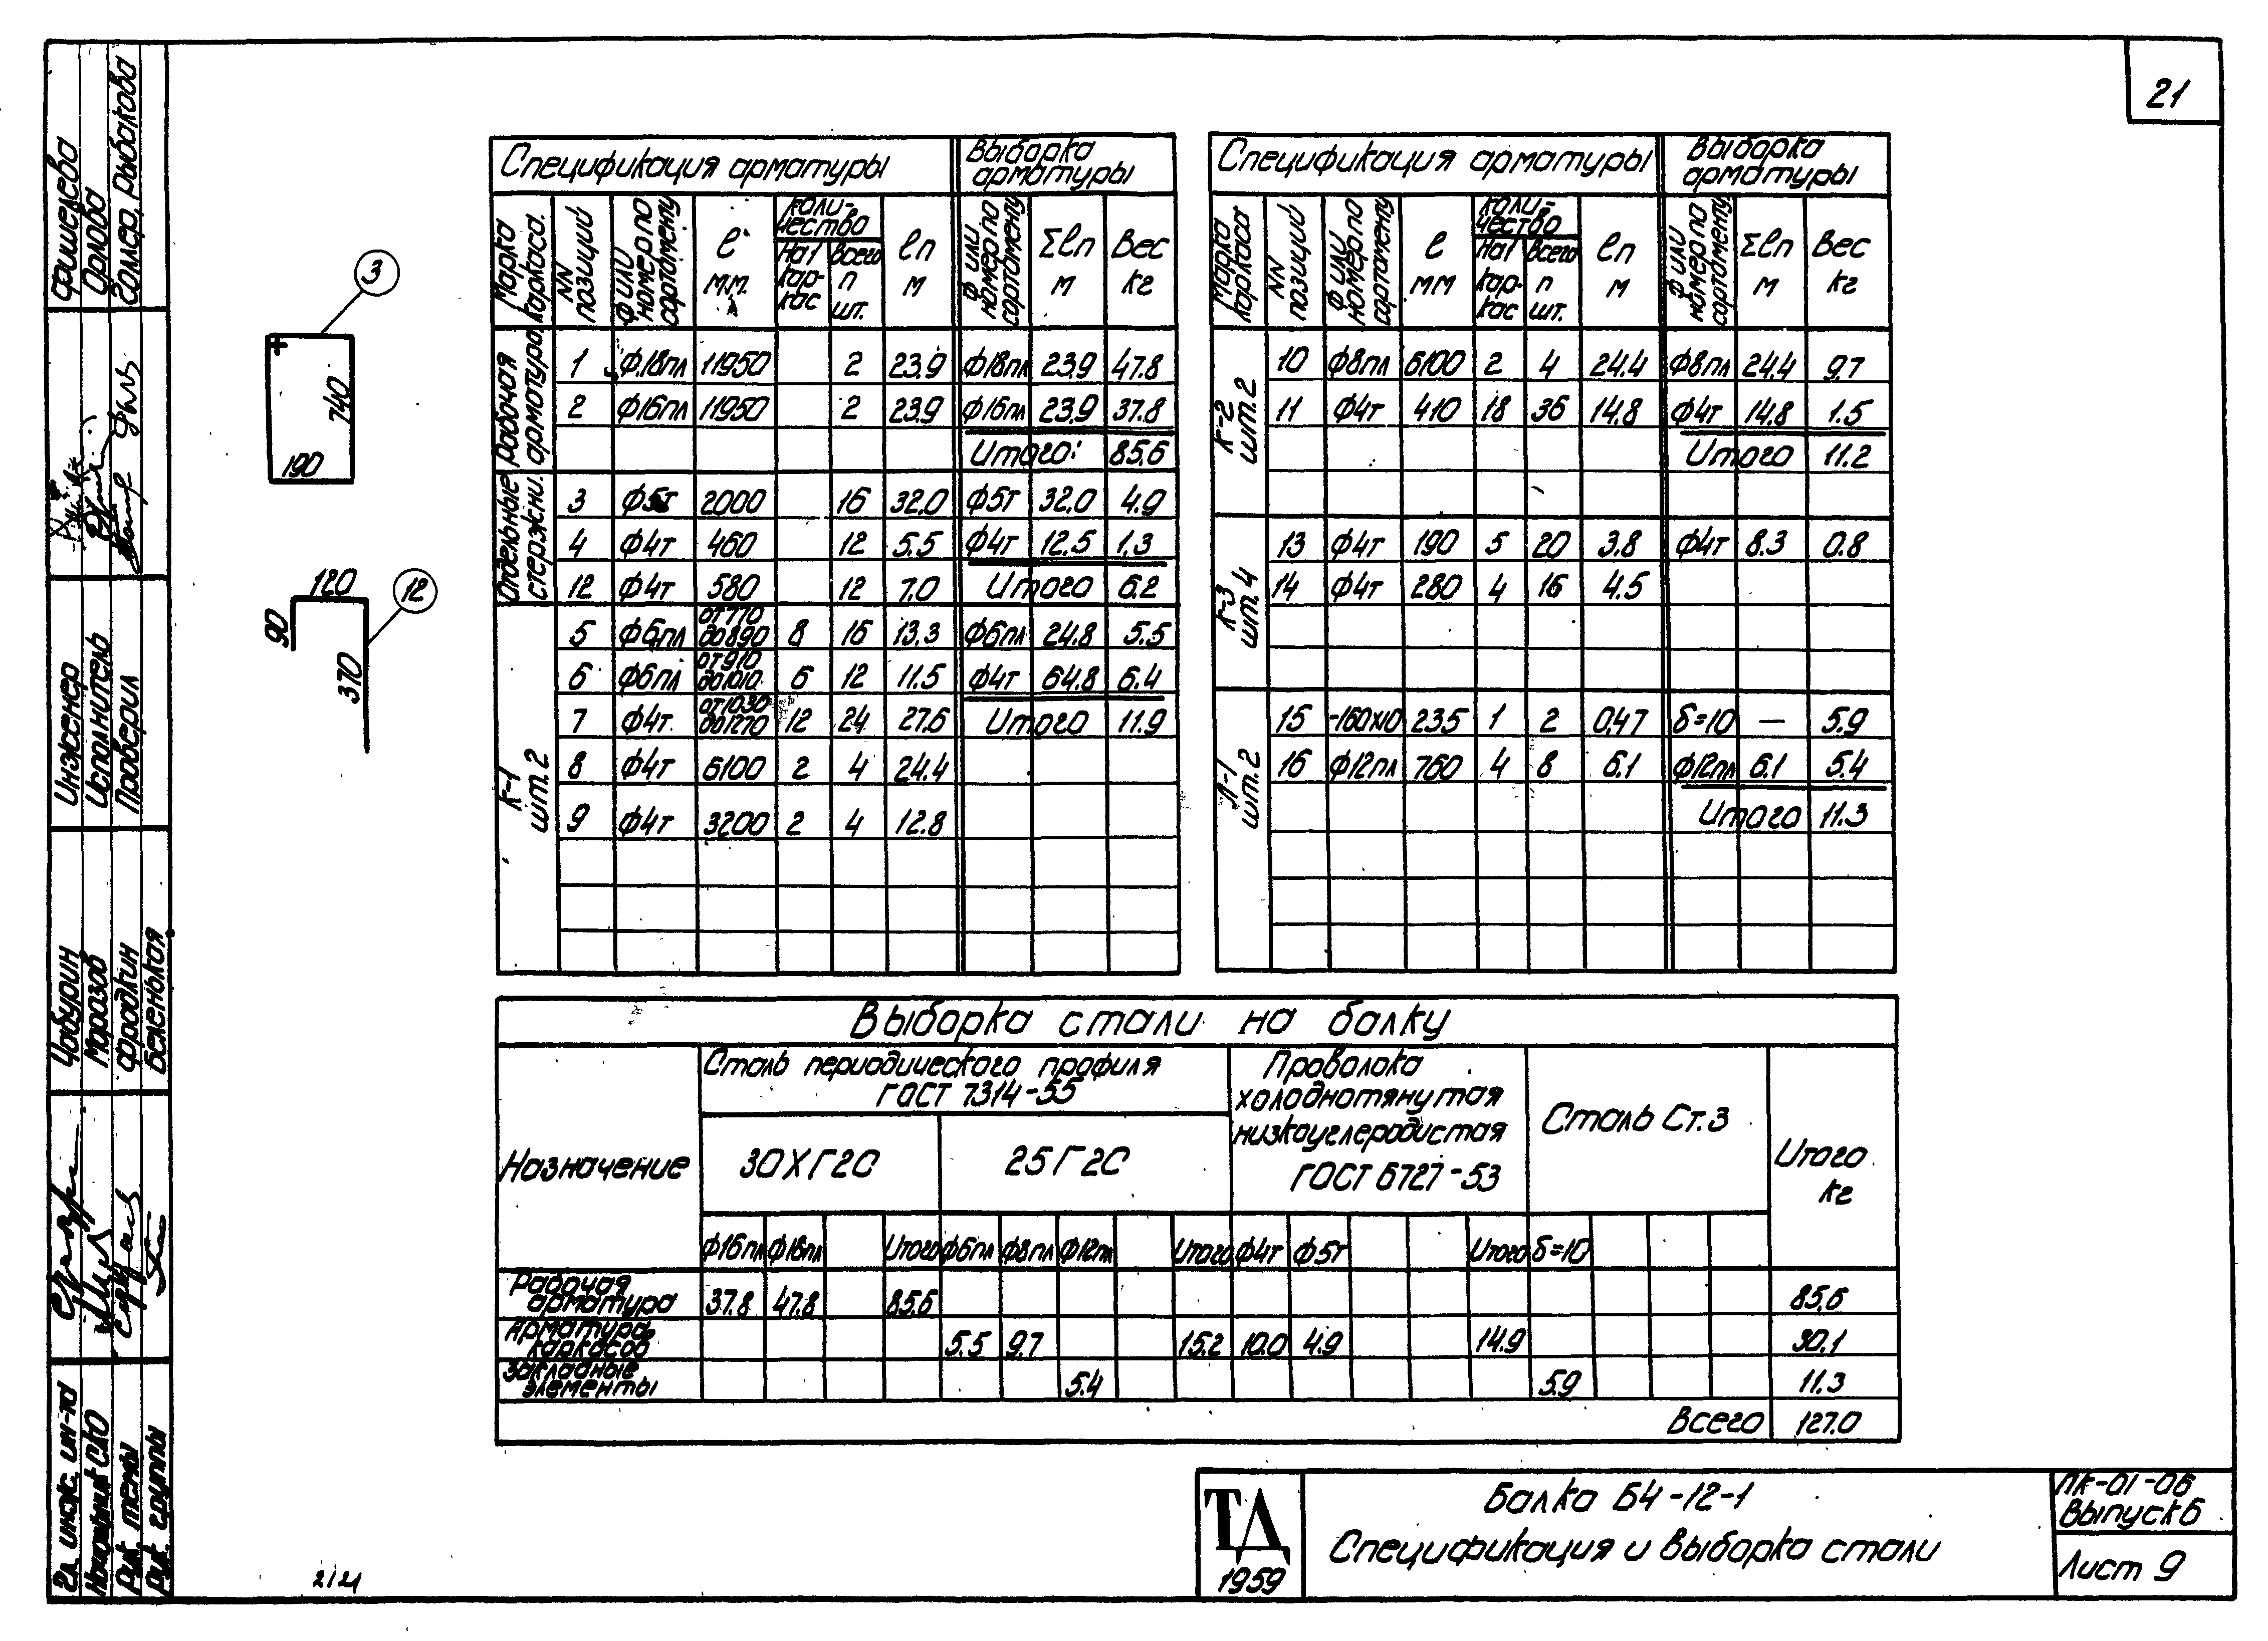 21
3
740
190
120
12
90
370
Спецификация арматуры Выборка арматуры
Марка каркаса. NN позиций Ф или номер по сортаменту ℓ мм. Количество На 1 каркас Всего п шт. ℓп м Ф или номер по сортаменту Σℓп м Вес кг
Рабочая арматура
1 Ф18пл 11950 2 23.9 Ф18пл 23.9 47.8
2 Ф16пл 11950 2 23.9 Ф16пл 23.9 37.8
Итого: 85.6
Отдельные стержни.
3 Ф5т 2000 16 32.0 Ф5т 32.0 4.9
4 Ф4т 460 12 5.5 Ф4т 12.5 1.3
12 Ф4т 580 12 7.0 Итого 6.2
К-1 шт.2
5 Ф6пл от 770 до 890 8 16 13.3 Ф6пл 24.8 5.5
6 Ф6пл от 910 до 1010 6 12 11.5 Ф4т 64.8 6.4
7 Ф4т от 1030 до 1270 12 24 27.6 Итого 11.9
8 Ф4т 6100 2 4 24.4
9 Ф4т 3200 2 4 12.8
Спецификация арматуры Выборка арматуры
Марка каркаса NN позиций Ф или номер по сортаменту ℓ мм Количество На 1 каркас Всего п шт. ℓп м Ф или номер по сортаменту Σℓп м Вес кг
К-2 шт.2
10 Ф8пл 6100 2 4 24.4 Ф8пл 24.4 9.7
11 Ф4т 410 18 36 14.8 Ф4т 14.8 1.5
Итого 11.2
К-3 шт.4
13 Ф4т 190 5 20 3.8 Ф4т 8.3 0.8
14 Ф4т 280 4 16 4.5
Л-1 шт.2
15 -160x10 235 1 2 0,47 δ=10 — 5.9
16 Ф12пл 760 4 8 6.1 Ф12пл 6.1 5.4
Итого 11.3
Выборка стали на балку
Назначение
Сталь периодического профиля
ГОСТ 7314-55
30ХГ2С 25Г2С
Проволока
холоднотянутая
низкоуглеродистая
ГОСТ 6727-53
Сталь Ст.3
Итого кг
Ф16пл Ф18пл Итого Ф6пл Ф8пл Ф12пл Итого Ф4т Ф5т Итого δ=10
Рабочая арматура 37.8 47.8 85.6 85.6
Арматура каркасов 5.5 9.7 15.2 10.0 4.9 14.9 30.1
Закладные элементы 5.4 5.9 11.3
Всего 127.0
ТД
1959
Балка Б4-12-1
Спецификация и выборка стали
ПК-01-06
Выпуск 6
Лист 9
2121
Гл. инж. ин-та Чабурин Инженер Фишелева
Начальник СКО Морозов Исполнитель Орлова
Рук. темы Фрадкин Проверил Гомер, Рыбакова
Рук. группы Беленькая